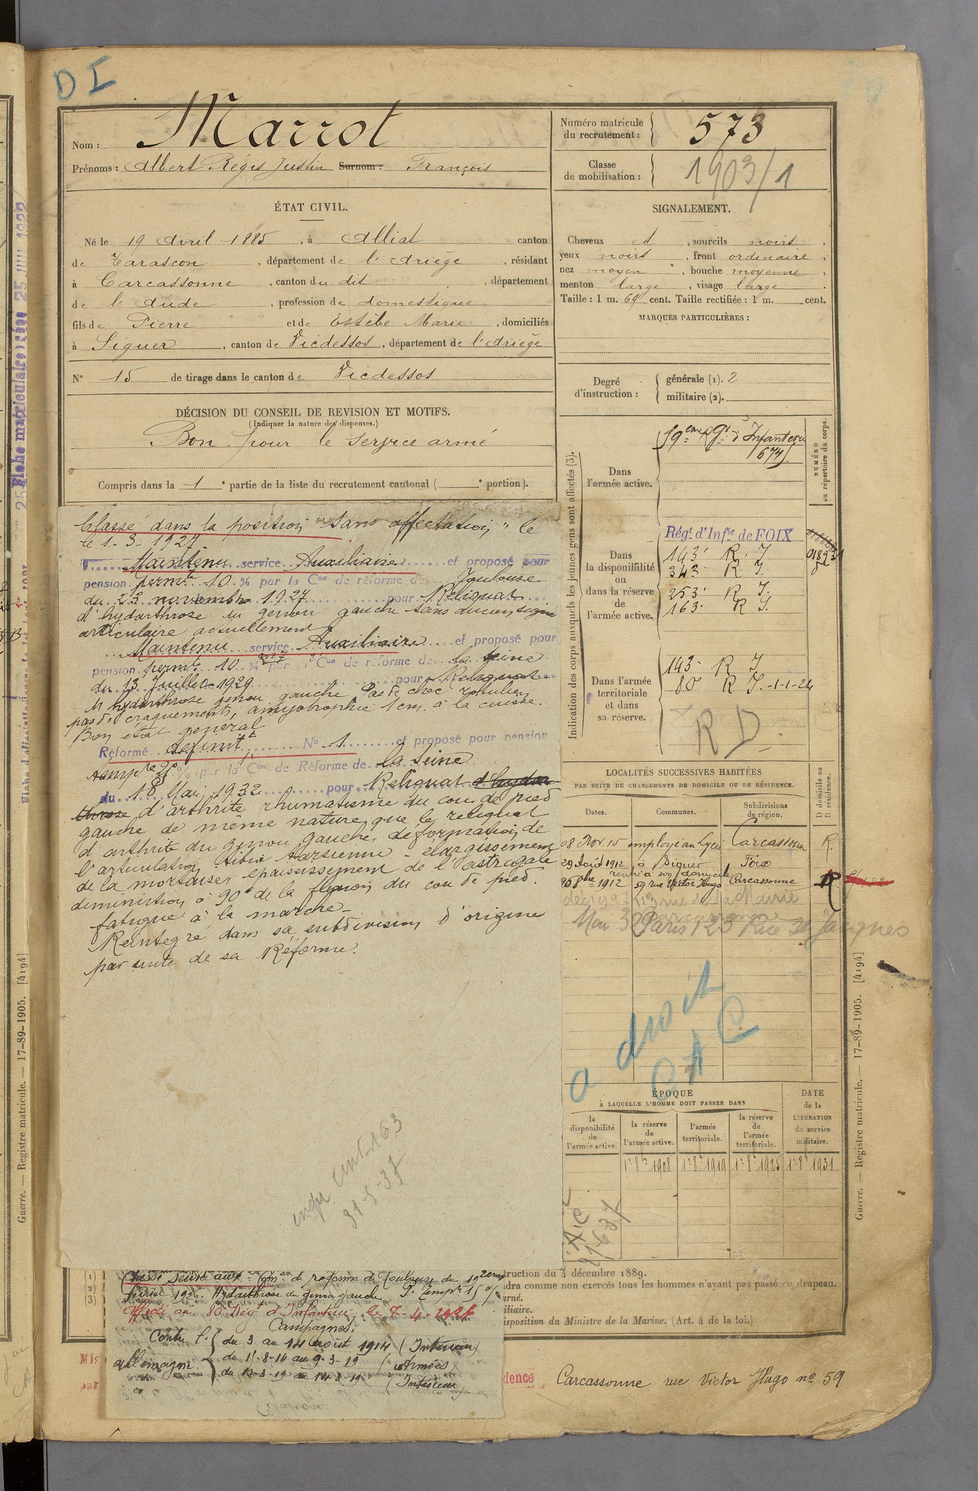 D I
Nom : Marrot
Prénoms : Albert Régis Justin Surnom : François
Numéro matricule du recrutement : 573
Classe de mobilisation : 1903/1
ÉTAT CIVIL.
Né le 19 Avril 1885, à Alliat canton
de Tarascon, département de l'Ariège, résidant
à Carcassonne, canton du dit, département
de l'Aude, profession de domestique
fils de Pierre et de Estèbe Marie, domiciliés
à Siguer, canton de Vicdessos, département de l'Ariège
N° 15 de tirage dans le canton de Vicdessos
SIGNALEMENT.
Cheveux et, sourcils noirs,
yeux noirs, front ordinaire,
nez moyen, bouche moyenne,
menton large, visage large.
Taille : 1 m. 69 cent. Taille rectifiée : 1 m. cent.
MARQUES PARTICULIÈRES :
Degré d'instruction : générale (1). 2
militaire (2).
DÉCISION DU CONSEIL DE REVISION ET MOTIFS.
(Indiquer la nature des dispenses.)
Bon pour le service armé
Compris dans la 1e partie de la liste du recrutement cantonal ( e portion).
Classé dans la position "sans affectation" le
le 1-3-1927
Maintenu service Auxiliaire et proposé pour
pension permte 10 % par la Con de réforme de Toulouse
du 23 novembre 1927 pour Reliquat
d'hydarthrose du genou gauche sans aucun signe
articulaire actuellement
Maintenu service Auxiliaire et proposé pour
pension permte 10 % par la Con de réforme de la Seine
du 13 Juillet 1929 pour Reliquat
d'hydarthrose genou gauche Pas de choc rotulien
pas de craquements, amyotrophie 1 cm. à la cuisse.
Bon état général
Réformé définitt N° 1 et proposé pour pension
% par la Con de Réforme de La Seine
du 18 Mai 1932 pour Reliquat d'hydar-
throse d'arthrite rhumatisme du cou de pied
gauche de même nature que le reliquat
d'arthrite du genou gauche, déformation de
l'articulation tibio tarsienne - élargissement
de la mortaise, épaississement de l'astragale
diminution à 90° de la flexion du cou de pied.
fatigue à la marche.
Réintégré dans sa subdivision d'origine
par suite de sa Réforme.
Cant 163
31-5-37
Indication des corps auxquels les jeunes gens sont affectés (3).
NUMÉRO au répertoire du corps.
Dans l'armée active.
59eme Rgt d'Infanterie
Dans la disponibilité ou dans la réserve de l'armée active.
Régt d'Infie de FOIX
143e R. I.
343e R I.
253e R I.
163e R I.
Dans l'armée territoriale et dans sa réserve.
143e R I
80e R I. 1-1-24
R D
LOCALITÉS SUCCESSIVES HABITÉES
PAR SUITE DE CHANGEMENTS DE DOMICILE OU DE RÉSIDENCE.
Dates. Communes. Subdivisions de région. D domicile ou R résidence.
employé au Lycée Carcassonne R
29 Août 1912 à Siguer Foix
rentré à son domicile
8bre 1912 59 rue Victor Hugo Carcassonne
Mai 32 Paris 123 Rue St Jacques
a droit
C A C
ÉPOQUE
À LAQUELLE L'HOMME DOIT PASSER DANS
la disponibilité de l'armée active.
la réserve de l'armée active.
l'armée territoriale.
la réserve de l'armée territoriale.
DATE de la LIBÉRATION du service militaire.
1er 8bre 1908 1er 8bre 1919 1er 8bre 1925 1er 8bre 1931
(1)
(2)
(3)
truction du 4 décembre 1889.
dra comme non exercés tous les hommes n'ayant pas passé au drapeau.
armé.
iliaire.
isposition du Ministre de la Marine. (Art. 4 de la loi.)
Classé Service aux. Com de réforme de Toulouse du 19
février 1926. Hydarthrose du genou gauche
Affecté au 80e Régt d'Infanterie le 8-4-1926
Campagnes :
Contre l'Allemagne
du 3 au 14 août 1914 (Intérieur)
au 9-3-19 (Armées)
(Intérieur)
Mis
par
dence Carcassonne rue Victor Hugo n° 59
Guerre. — Registre matricule. — 17-89-1905. [4194]
Guerre. — Registre matricule. — 17-89-1905. [4194]